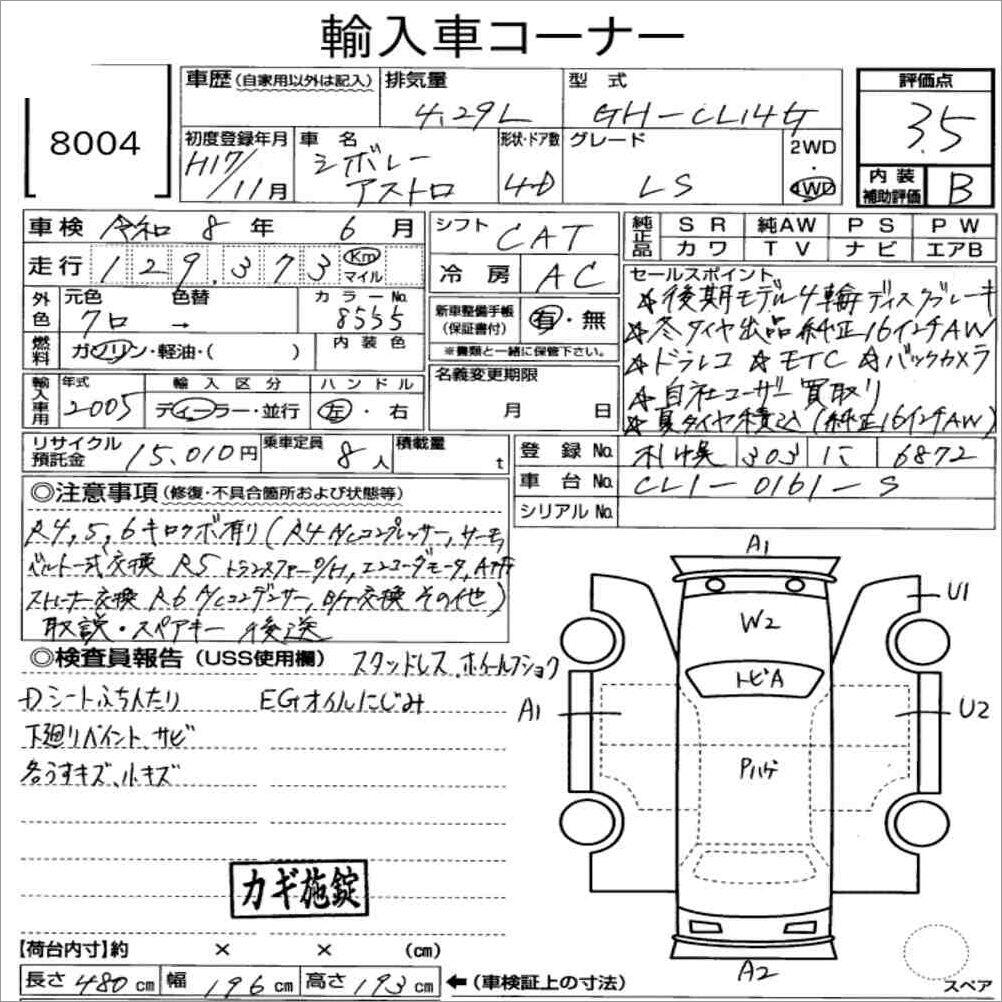 輸入車コーナー
8004
車歴(自家用以外は記入) 排気量 4.29L 型式 GH-CL14G 評価点 3.5
初度登録年月 H17/11月 車名 シボレー アストロ 形状・ドア数 4D グレード LS 2WD・4WD 内装補助評価 B
車検 令和 8年 6月 シフト CAT 純正品 SR 純AW PS PW
カワ TV ナビ エアB
走行 129,373 Km マイル 冷房 AC
外色 元色 クロ 色替 → カラーNo. 8555 内装色
燃料 ガソリン・軽油・( )
新車整備手帳(保証書付) 有・無
※書類と一緒に保管下さい。
輸入車用 年式 2005 輸入区分 ディーラー・並行 ハンドル 左・右
名義変更期限 月 日
セールスポイント
☆後期モデル4輪ディスクブレーキ
☆冬タイヤ出品純正16インチAW
☆ドラレコ ☆ETC ☆バックカメラ
☆自社ユーザー買取り
☆夏タイヤ積込(純正16インチAW)
リサイクル預託金 15,010円 乗車定員 8人 積載量 t
登録No. 札幌 303 に 6872
車台No. CL1-0161-S
シリアルNo.
◎注意事項(修復・不具合箇所および状態等)
R4,5,6キロクボ有り(R4A/Cコンプレッサー,サーモ,
ベルト一式交換 R5トランスファーO/H,エンコーダモータ,
ストレーナー交換 R6A/Cコンデンサー,B/T交換 その他)
取説・スペアキー 後送
◎検査員報告(USS使用欄) スタッドレス、ホイールフショク
Dシートふちへたり EGオイルにじみ
下廻りペイント、サビ
各うすキズ、小キズ
カギ施錠
A1
U1
W2
トビA
A1
U2
Pハゲ
A2
スペア
【荷台内寸】約 × × (cm)
長さ 480cm 幅 196cm 高さ 193cm ←(車検証上の寸法)